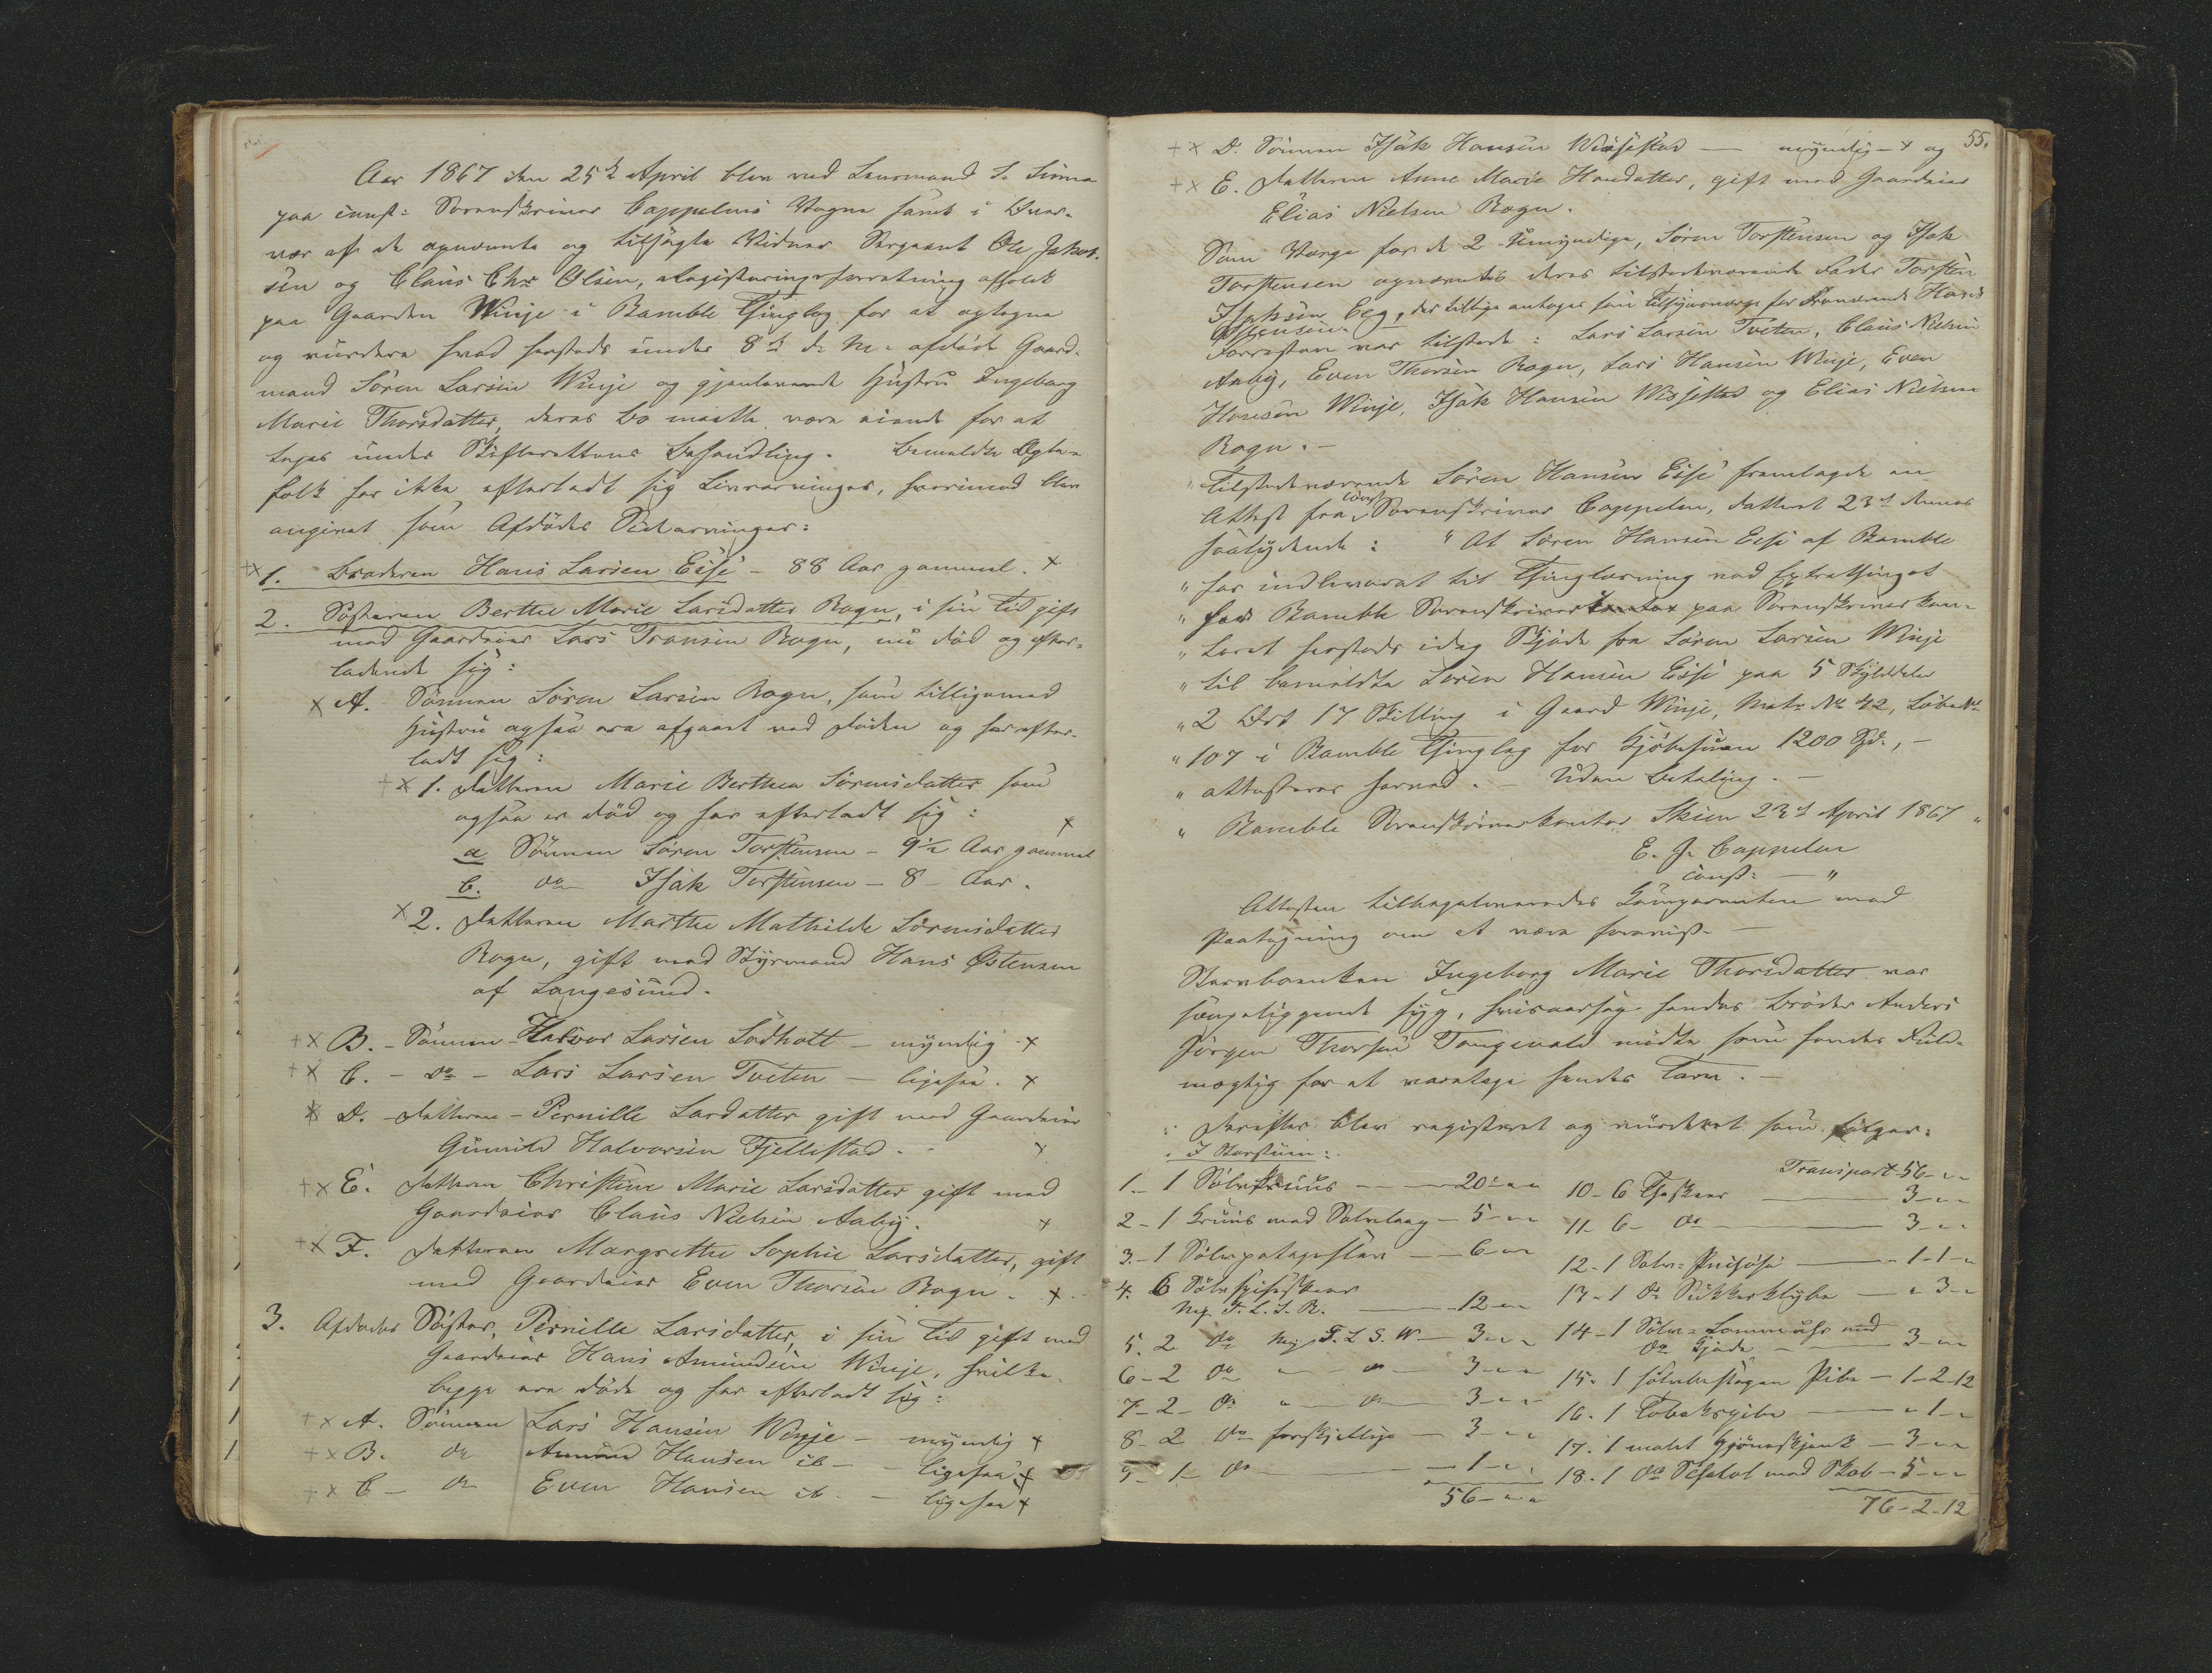 Aar 1867 den 25de April blev ved Lensmand S. Linna
paa const: Sorenskriver Cappelens Vegne samt i Over-
vær af de opnævnte og tilsagte Vidner Sergeant Ole Jakob-
sen og Claus Chr. Olsen, Registreringsforretning afholdt
paa Gaarden Winje i Bamble Thinglag for at optegne
og vurdere hvad hersteds under 8de d. M. afdøde Gaard-
mand Søren Larsen Winje og gjenlevende Hustru Ingeborg
Marie Thorsdatter, deres Bo maatte være eiende for at
tages under Skifterettens Behandling. Bemeldte Egte-
folk har ikke efterladt sig Livsarvinger, hvorimod blev
angivet som Afdødes Udarvinger:
1. Broderen Hans Larsen Eise - 88 Aar gammel.
2. Søsteren Berthe Marie Larsdatter Rogn, i sin Tid gift
med Gaardeier Lars Transen Rogn, nu død og efter-
ladende sig:
A. Sønnen Søren Larsen Rogn, som tilligemed
Hustru ogsaa ere afgaaet ved Døden og har efter-
ladt sig:
1. Datteren Marie Berthea Sørensdatter som
ogsaa er død og har efterladt sig:
a Sønnen Søren Torstensen - 9½ Aar gammel
b. do Isak Torstensen - 8 - Aar.
2. Datteren Marthe Mathilde Sørensdatter
Rogn, gift med Styrmand Hans Østensen
af Langesund.
B. - Sønnen Halvor Larsen Ladholt - myndig
C. - do - Lars Larsen Tveten - ligesaa.
D. - Datteren - Pernille Larsdatter gift med Gaardeier
Gunnuld Halvorsen Fjellestad.
E. Datteren Christine Marie Larsdatter gift med
Gaardeier Claus Nielsen Aaby.
F. Datteren Margrethe Sophie Larsdatter, gift
med Gaardeier Even Thorsen Rogn.
3. Afdødes Søster, Pernille Larsdatter, i sin Tid gift med
Gaardeier Hans Amundsen Winje, hvilke
begge ere døde og har efterladt sig:
A. Sønnen Lars Hansen Winje - myndig
B. do Amund Hansen ib - ligesaa
C - do Even Hansen ib. - ligesaa
55.
D. Sønnen Isak Hansen Wissestad - myndig - og
E. Datteren Anne Marie Hansdatter, gift med Gaardeier
Elias Nielsen Rogn.
Som Værge for de 2 Umyndige, Søren Torstensen og Isak
Torstensen opnævntes deres tilstedeværende Fader Torsten
Isaksen Eeg, der tillige antages som Tilsynsværge for fraværende Hans
Østensen.
Forresten var tilstede: Lars Larsen Tveten, Claus Nielsen
Aaby, Even Thorsen Rogn, Lars Hansen Winje, Even
Hansen Winje, Isak Hansen Wissestad og Elias Nielsen
Rogn. -
Tilstedeværende Søren Hansen Eise fremlagde en
Attest fra const Sorenskriver Cappelen, datteret 23de dennes
saalydende: " At Søren Hansen Eise af Bamble
" har indleveret til Thinglæsning ved Extrathinget
" for Bamble Sorenskriveri paa Sorenskriverkon-
" toret hersteds idag Skjøde fra Søren Larsen Winje
" til bemeldte Søren Hansen Eise paa 5 Skylddaler
" 2 Ort 17 Skilling i Gaard Winje, Matr No 42, Løbe No
" 107 i Bamble Thinglag for Kjøbesum 1200 Spd., -
" attesteres herved. - Uden Betaling. -
" Bamble Sorenskriverkontor Skien 23de April 1867 "
E. J. Cappelen
const: - "
Attesten tilbageleveredes Comparenten med
Paategning om at være foreviist -
Stervboenken Ingeborg Marie Thorsdatter var
sengeliggende syg, hvisaarsag hendes Broder Anders
Jørgen Thorsen Tangevald mødte som hendes Fuld-
mægtig for at varetage hendes Tarv. -
Derefter blev registreret og vurderet som følger:
I Storstuen:
1. - 1 Sølvkruus - 20 - " "
2 - 1 Kruus med Sølvlaag - 5 - " "
3. - 1 Sølvpotageskee - 6 - " "
4. 6 Sølvspiseskeer
Mrk. T. L. S. R. - 12 - " "
5. 2 do Mrk T. L S. W - 3 - " "
6 - 2 do " " - 3 - " "
7 - 2 - do " " - 3 - " "
8 - 2 do forskjellige - 3 - " "
9 - 1 - do - 1 - " "
56 - " "
Transport 56 - " "
10 - 6 Theskeer - 3 - " "
11 - 6 - do - 3 - " "
12 - 1 Sølv- - 1 - 1 - "
13 - 1 do Sukkerklype - " 3 - "
14 - 1 Sølv-Lommeuhr med
do Kjæde - 3 - " "
15. 1 sølvbeslagen Pibe - 1 - 2 - 12
16. 1 - " 1 - "
17. 1 malet Hjørneskjænk - 3 - " "
18. 1 do Schatol med Skab - 5 - " "
76 - 2 - 12